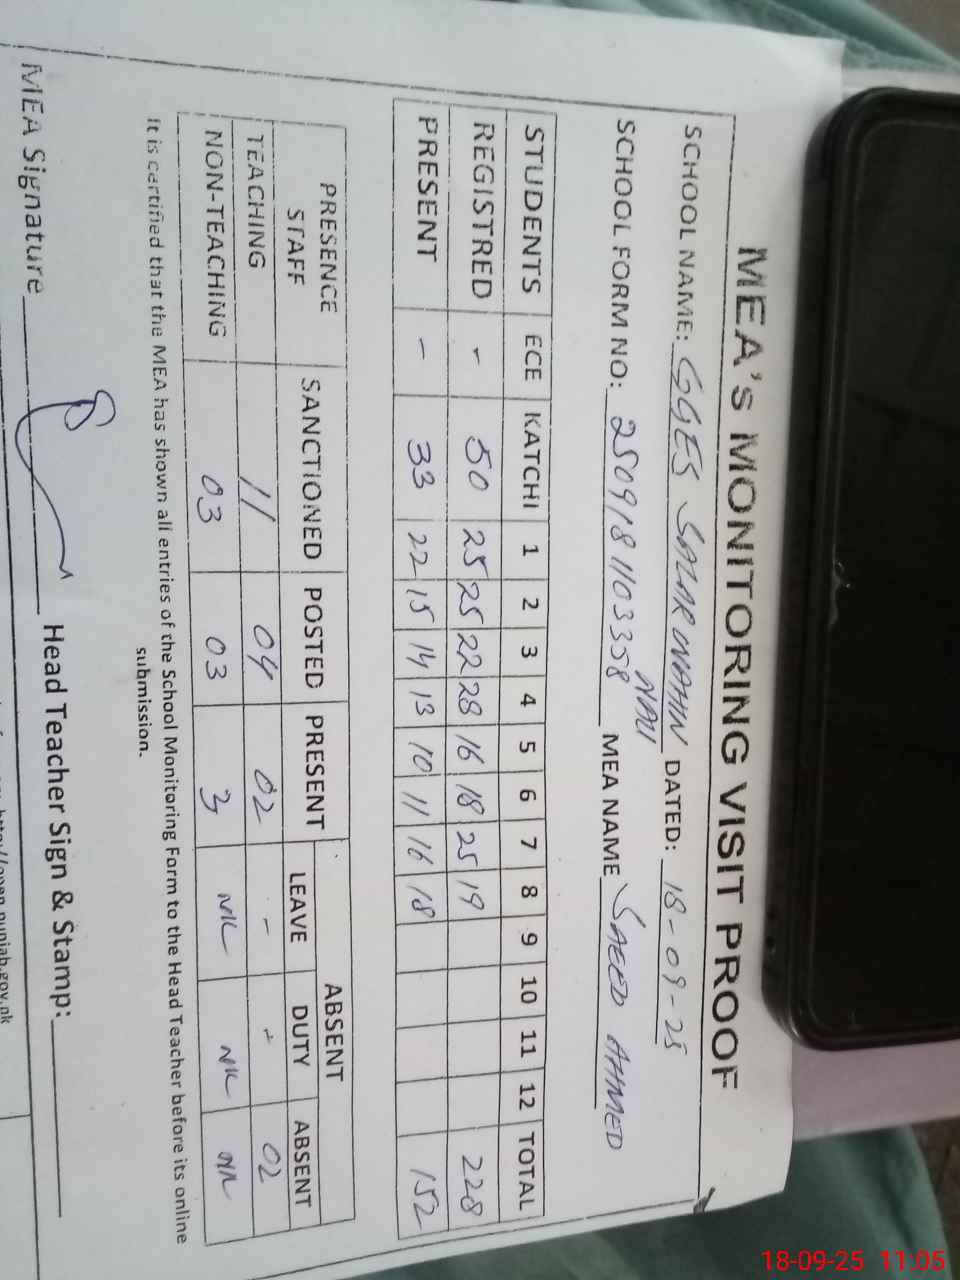 MEA'S MONITORING VISIT PROOF
SCHOOL NAME: GGES SALAR WAHN DATED: 18-09-25
NAU
SCHOOL FORM NO: 2509181103358 MEA NAME SAEED AHMED
STUDENTS ECE KATCHI 1 2 3 4 5 6 7 8 9 10 11 12 TOTAL
REGISTRED - 50 25 25 22 28 16 18 25 19 228
PRESENT - 33 22 15 14 13 10 11 16 18 152
PRESENCE STAFF SANCTIONED POSTED PRESENT ABSENT
LEAVE DUTY ABSENT
TEACHING 11 04 02 - - 02
NON-TEACHING 03 03 3 NIL NIL NIL
It is certified that the MEA has shown all entries of the School Monitoring Form to the Head Teacher before its online
submission.
MEA Signature Head Teacher Sign & Stamp:
http://open.punjab.gov.pk
18-09-25 11:05